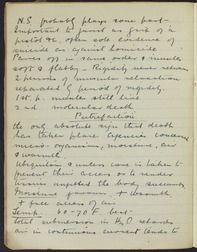 N.S. probably plays some part-
Important to forensi as grip of a
pistol etc often sole evidence of
suicide as against homicide
Passes off in same order & muscle
soft & flabby - Rigidity never
2 periods of muscular relaxation
separated by period of rigidity.
1st p. muscle still live
2nd molecular death
Putrefaction
the only absolute sign that death
has taken place Agencies concerned
micro-organisms, moisture, air
& warmth
Ubiquitous & unless care is taken to
prevent their access or to render
tissues unfitted the body succumbs
Moisture favours + warmth
+ free access of air
Temp. 60-70 F. best.
total submersion in H2O retards
air in continuous current tends to